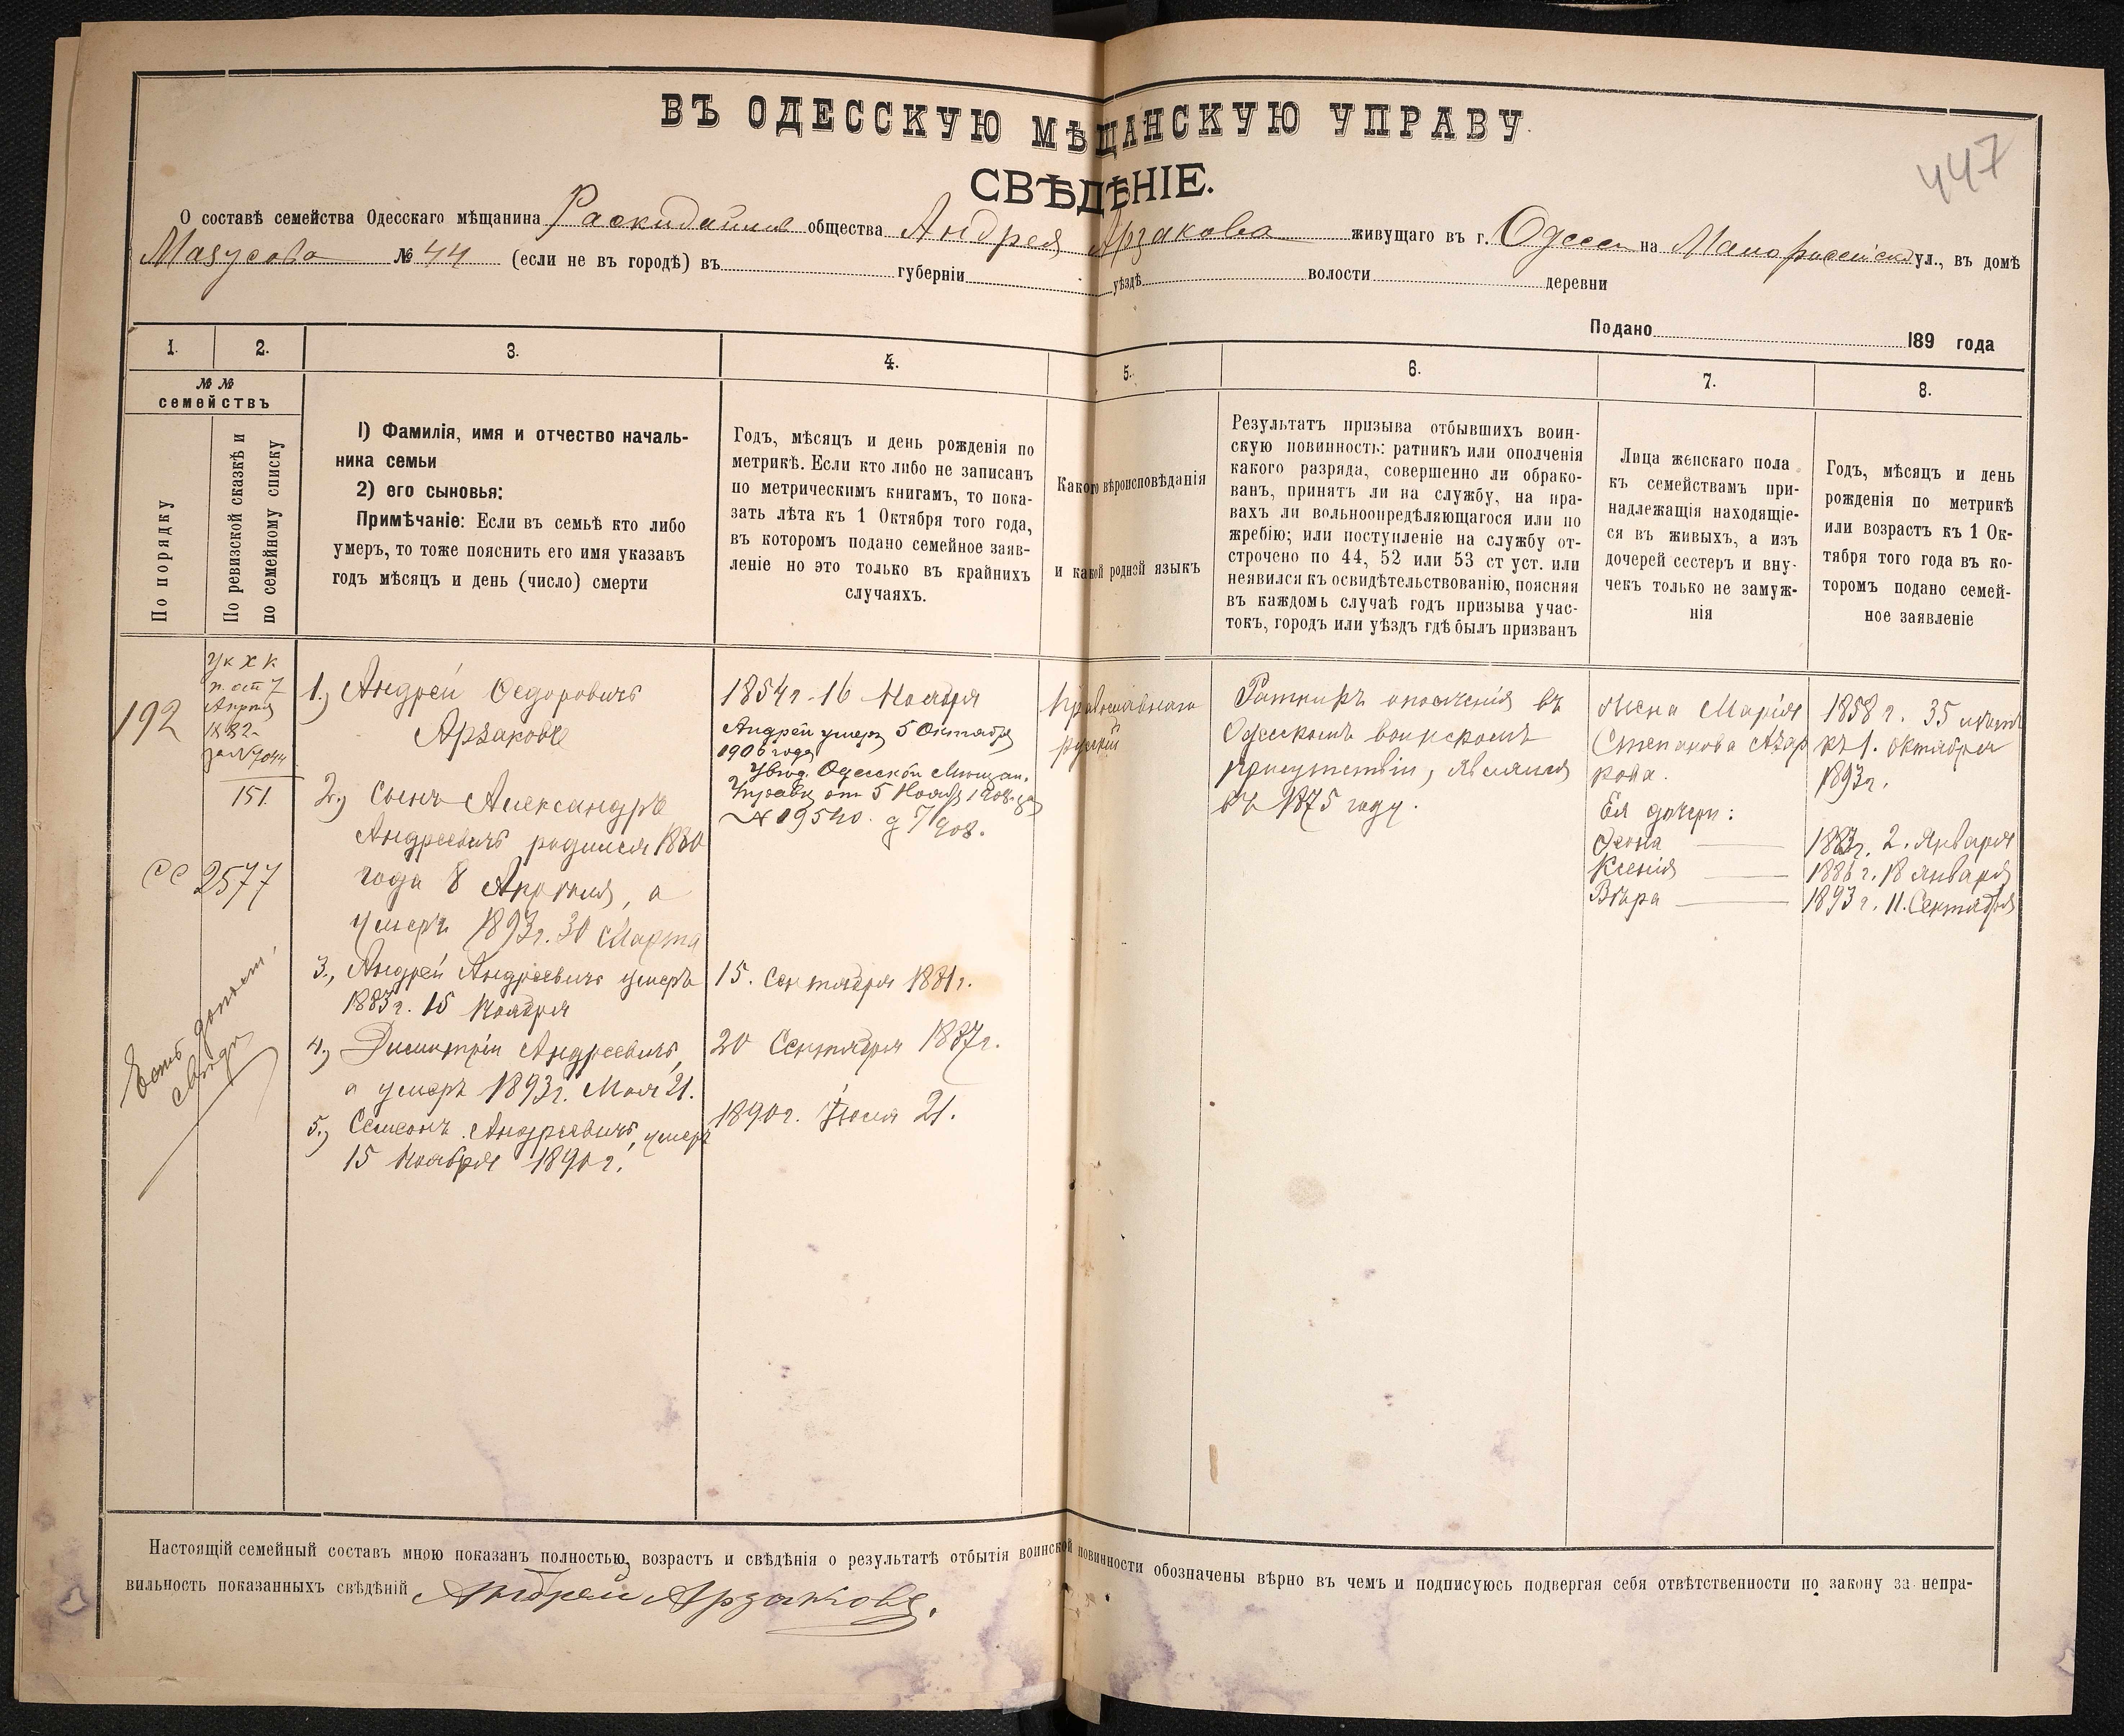 ВЪ ОДЕССКУЮ МѢЩАНСКУЮ УПРАВУ
СВѢДѢНІЕ.
447
О составѣ семейства Одесскаго мѣщанина Раскидайлов общества Андрея Арзакова живущаго въ г. Одессѣ на Малороссійской ул., въ домѣ
Мазусова № 44 (если не въ городѣ) въ губерніи уѣздѣ волости деревни
Подано 189 года
1. 2. 3. 4. 5. 6. 7. 8.
№ №
семействъ
По порядку
По ревизской сказкѣ и
по семейному списку
1) Фамилія, имя и отчество началь-
ника семьи
2) его сыновья:
Примѣчаніе: Если въ семьѣ кто либо
умеръ, то тоже пояснить его имя указавъ
годъ мѣсяцъ и день (число) смерти
Годъ, мѣсяцъ и день рожденія по
метрикѣ. Если кто либо не записанъ
по метрическимъ книгамъ, то пока-
зать лѣта къ 1 Октября того года,
въ которомъ подано семейное заяв-
леніе но это только въ крайнихъ
случаяхъ.
Какого вѣроисповѣданія
и какой родной языкъ
Результатъ призыва отбывшихъ воин-
скую повинность: ратникъ или ополченія
какого разряда, совершенно ли обрако-
ванъ, принятъ ли на службу, на пра-
вахъ ли вольноопредѣляющагося или по
жребію; или поступленіе на службу от-
строчено по 44, 52 или 53 ст уст. или
неявился къ освидѣтельствованію, поясняя
въ каждомъ случаѣ годъ призыва учас-
токъ, городъ или уѣздъ гдѣ былъ призванъ
Лица женскаго пола
къ семействамъ при-
надлежащія находящіе-
ся въ живыхъ, а изъ
дочерей сестеръ и вну-
чекъ только не замуж-
нія
Годъ, мѣсяцъ и день
рожденія по метрикѣ
или возрастъ къ 1 Ок-
тября того года въ ко-
торомъ подано семей-
ное заявленіе
192
Ук Х К
п. отъ 7
Апрѣля
1882
за № 7044
151
СС 2577
Есть дополн.
свѣд.
1.) Андрей Федоровичъ
Арзаковъ
2.) Сынъ Александръ
Андреевичъ родился 1880
года 8 Апрѣля, а
умеръ 1893г. 30 Марта
3., Андрей Андреевичъ умеръ
1883г. 15 Ноября
4.) Димитрій Андреевичъ,
а умеръ 1893г. Мая 21.
5.) Семенъ Андреевичъ, умеръ
15 Ноября 1890г.
1854г. 16 Ноября
Андрей умеръ 5 Октября
1906 года
Увѣд. Одесской Мѣщан.
Управы от 5 Нояб. 1908 за
№ 19540. д 7/908.
15. Сентября 1881г.
20 Сентября 1887г.
1890г. Іюля 21.
Православнаго
русскій
Ратникъ ополченія въ
Одесскомъ воинскомъ
присутствіи, являлся
въ 1875 году.
Жена Марія
Степанова Арза
кова.
Ея дочери:
Ксенія
Вѣра
1858 г. 35 лѣтъ
къ 1. Октября
1893г.
1883г. 2. Января
1886 г. 18 Января
1893 г. 11. Сентября
Настоящій семейный составъ мною показанъ полностью, возрастъ и свѣдѣнія о результатѣ отбытія воинской повинности обозначены вѣрно въ чемъ и подписуюсь подвергая себя отвѣтственности по закону за непра-
вильность показанныхъ свѣдѣній Андрей Арзаковъ.